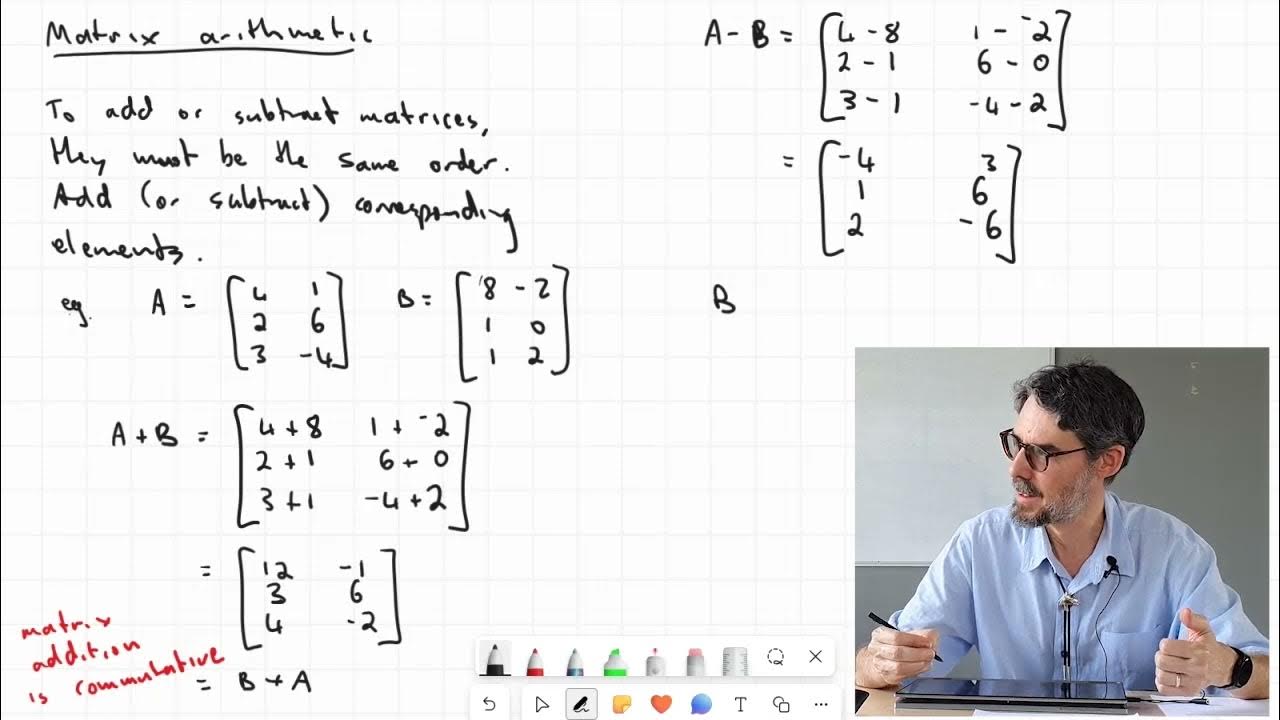 Matrix arithmetic
To add or subtract matrices,
they must be the same order.
Add (or subtract) corresponding
elements.
eg. A = [4 1 B = [8 -2
2 6 1 0
3 -4] 1 2]
A + B = [4 + 8 1 + -2
2 + 1 6 + 0
3 + 1 -4 + 2]
= [12 -1
3 6
4 -2]
= B + A
matrix
addition
is commutative
A - B = [4 - 8 1 - -2
2 - 1 6 - 0
3 - 1 -4 - 2]
= [-4 3
1 6
2 -6]
B
T